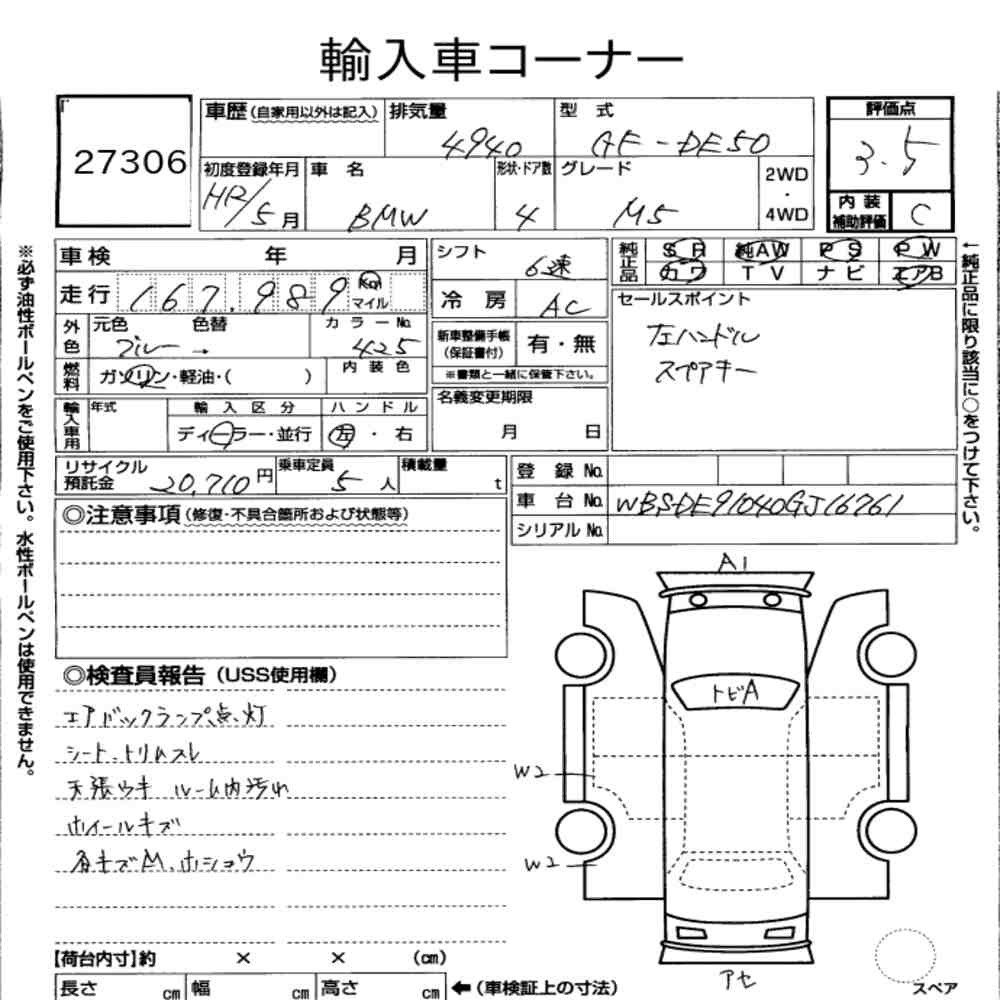 輸入車コーナー
27306
車歴(自家用以外は記入) 排気量 4940 型式 GF-DE50
初度登録年月 H12/5月 車名 BMW 形状・ドア数 4 グレード M5 2WD・4WD
評価点 3.5
内装補助評価 C
※必ず油性ボールペンをご使用下さい。水性ボールペンは使用できません。
車検 年 月
走行 167,989 Km マイル
外色 元色 ブルー 色替 → カラーNo. 425
燃料 ガソリン・軽油・( ) 内装色
輸入車用 年式 輸入区分 ディーラー・並行 ハンドル 左・右
シフト 6速
冷房 AC
新車整備手帳(保証書付) 有・無
※書類と一緒に保管下さい。
名義変更期限 月 日
純正品 SR 純AW PS PW
カワ TV ナビ エアB
セールスポイント
左ハンドル
スペアキー
←純正品に限り該当に○をつけて下さい。
リサイクル預託金 20,710円 乗車定員 5人 積載量 t
登録No.
車台No. WBSDE91040GJ16761
シリアルNo.
◎注意事項(修復・不具合箇所および状態等)
◎検査員報告(USS使用欄)
エアバックランプ点灯
シート、トリムスレ
天張ウキ ルーム内汚れ
ホイールキズ
各キズM、ホショウ
A1
トビA
W2
W2
アセ
スペア
【荷台内寸】約 × × (cm)
長さ cm 幅 cm 高さ cm ←(車検証上の寸法)